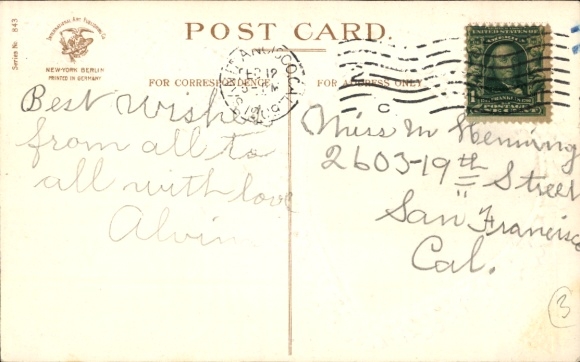 POST CARD.
Series No. 843
International Art Publishing Co.
NEW-YORK BERLIN
PRINTED IN GERMANY
FOR CORRESPONDENCE
FOR ADDRESS ONLY
SAN FRANCISCO, CAL.
FEB 12
C
UNITED STATES OF
AMERICA
POSTAGE
Best Wishes
from all to
all with love
Alvin
Miss M Henning
2603-19th Street
San Francisco
Cal.
3